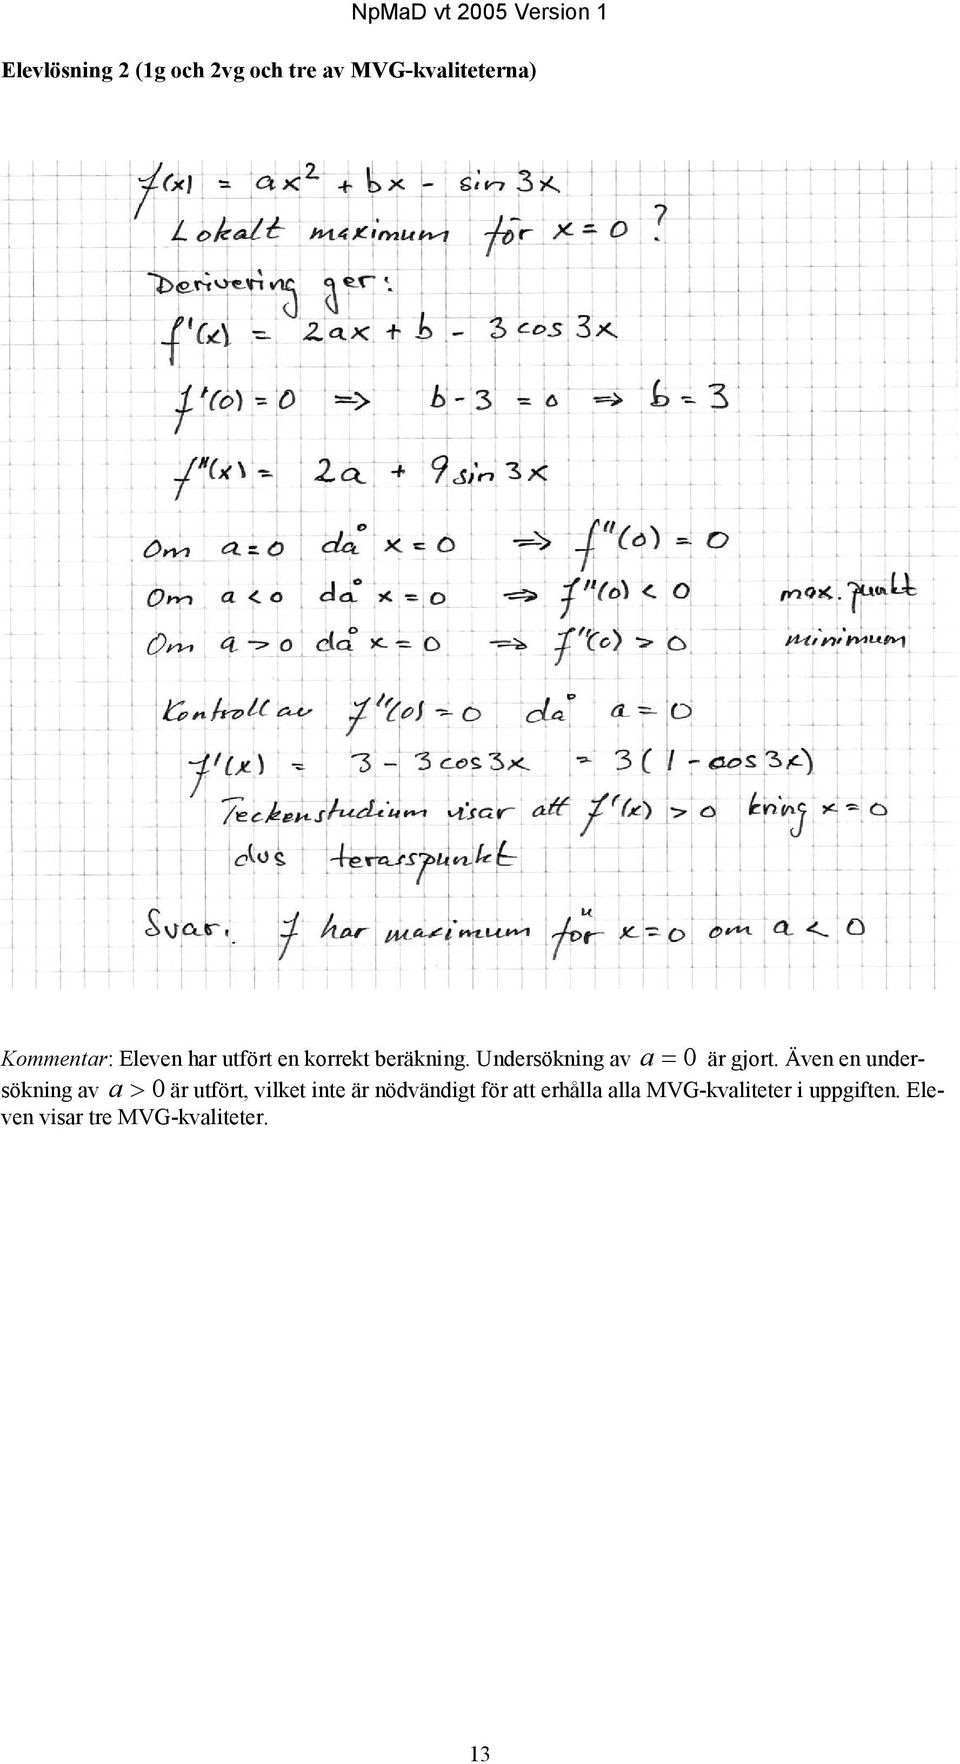 NpMaD vt 2005 Version 1
Elevlösning 2 (1g och 2vg och tre av MVG-kvaliteterna)
f(x) = ax² + bx - sin 3x
Lokalt maximum för x = 0 ?
Derivering ger:
f'(x) = 2ax + b - 3 cos 3x
f'(0) = 0 => b - 3 = 0 => b = 3
f''(x) = 2a + 9 sin 3x
Om a = 0 då x = 0 => f''(0) = 0
Om a < 0 då x = 0 => f''(0) < 0 max. punkt
Om a > 0 då x = 0 => f''(0) > 0 minimum
Kontroll av f''(0) = 0 då a = 0
f'(x) = 3 - 3 cos 3x = 3 ( 1 - cos 3x)
Teckenstudium visar att f'(x) > 0 kring x = 0
dvs terasspunkt
Svar: f har maximum för x = 0 om a < 0
Kommentar: Eleven har utfört en korrekt beräkning. Undersökning av a = 0 är gjort. Även en under-
sökning av a > 0 är utfört, vilket inte är nödvändigt för att erhålla alla MVG-kvaliteter i uppgiften. Ele-
ven visar tre MVG-kvaliteter.
13